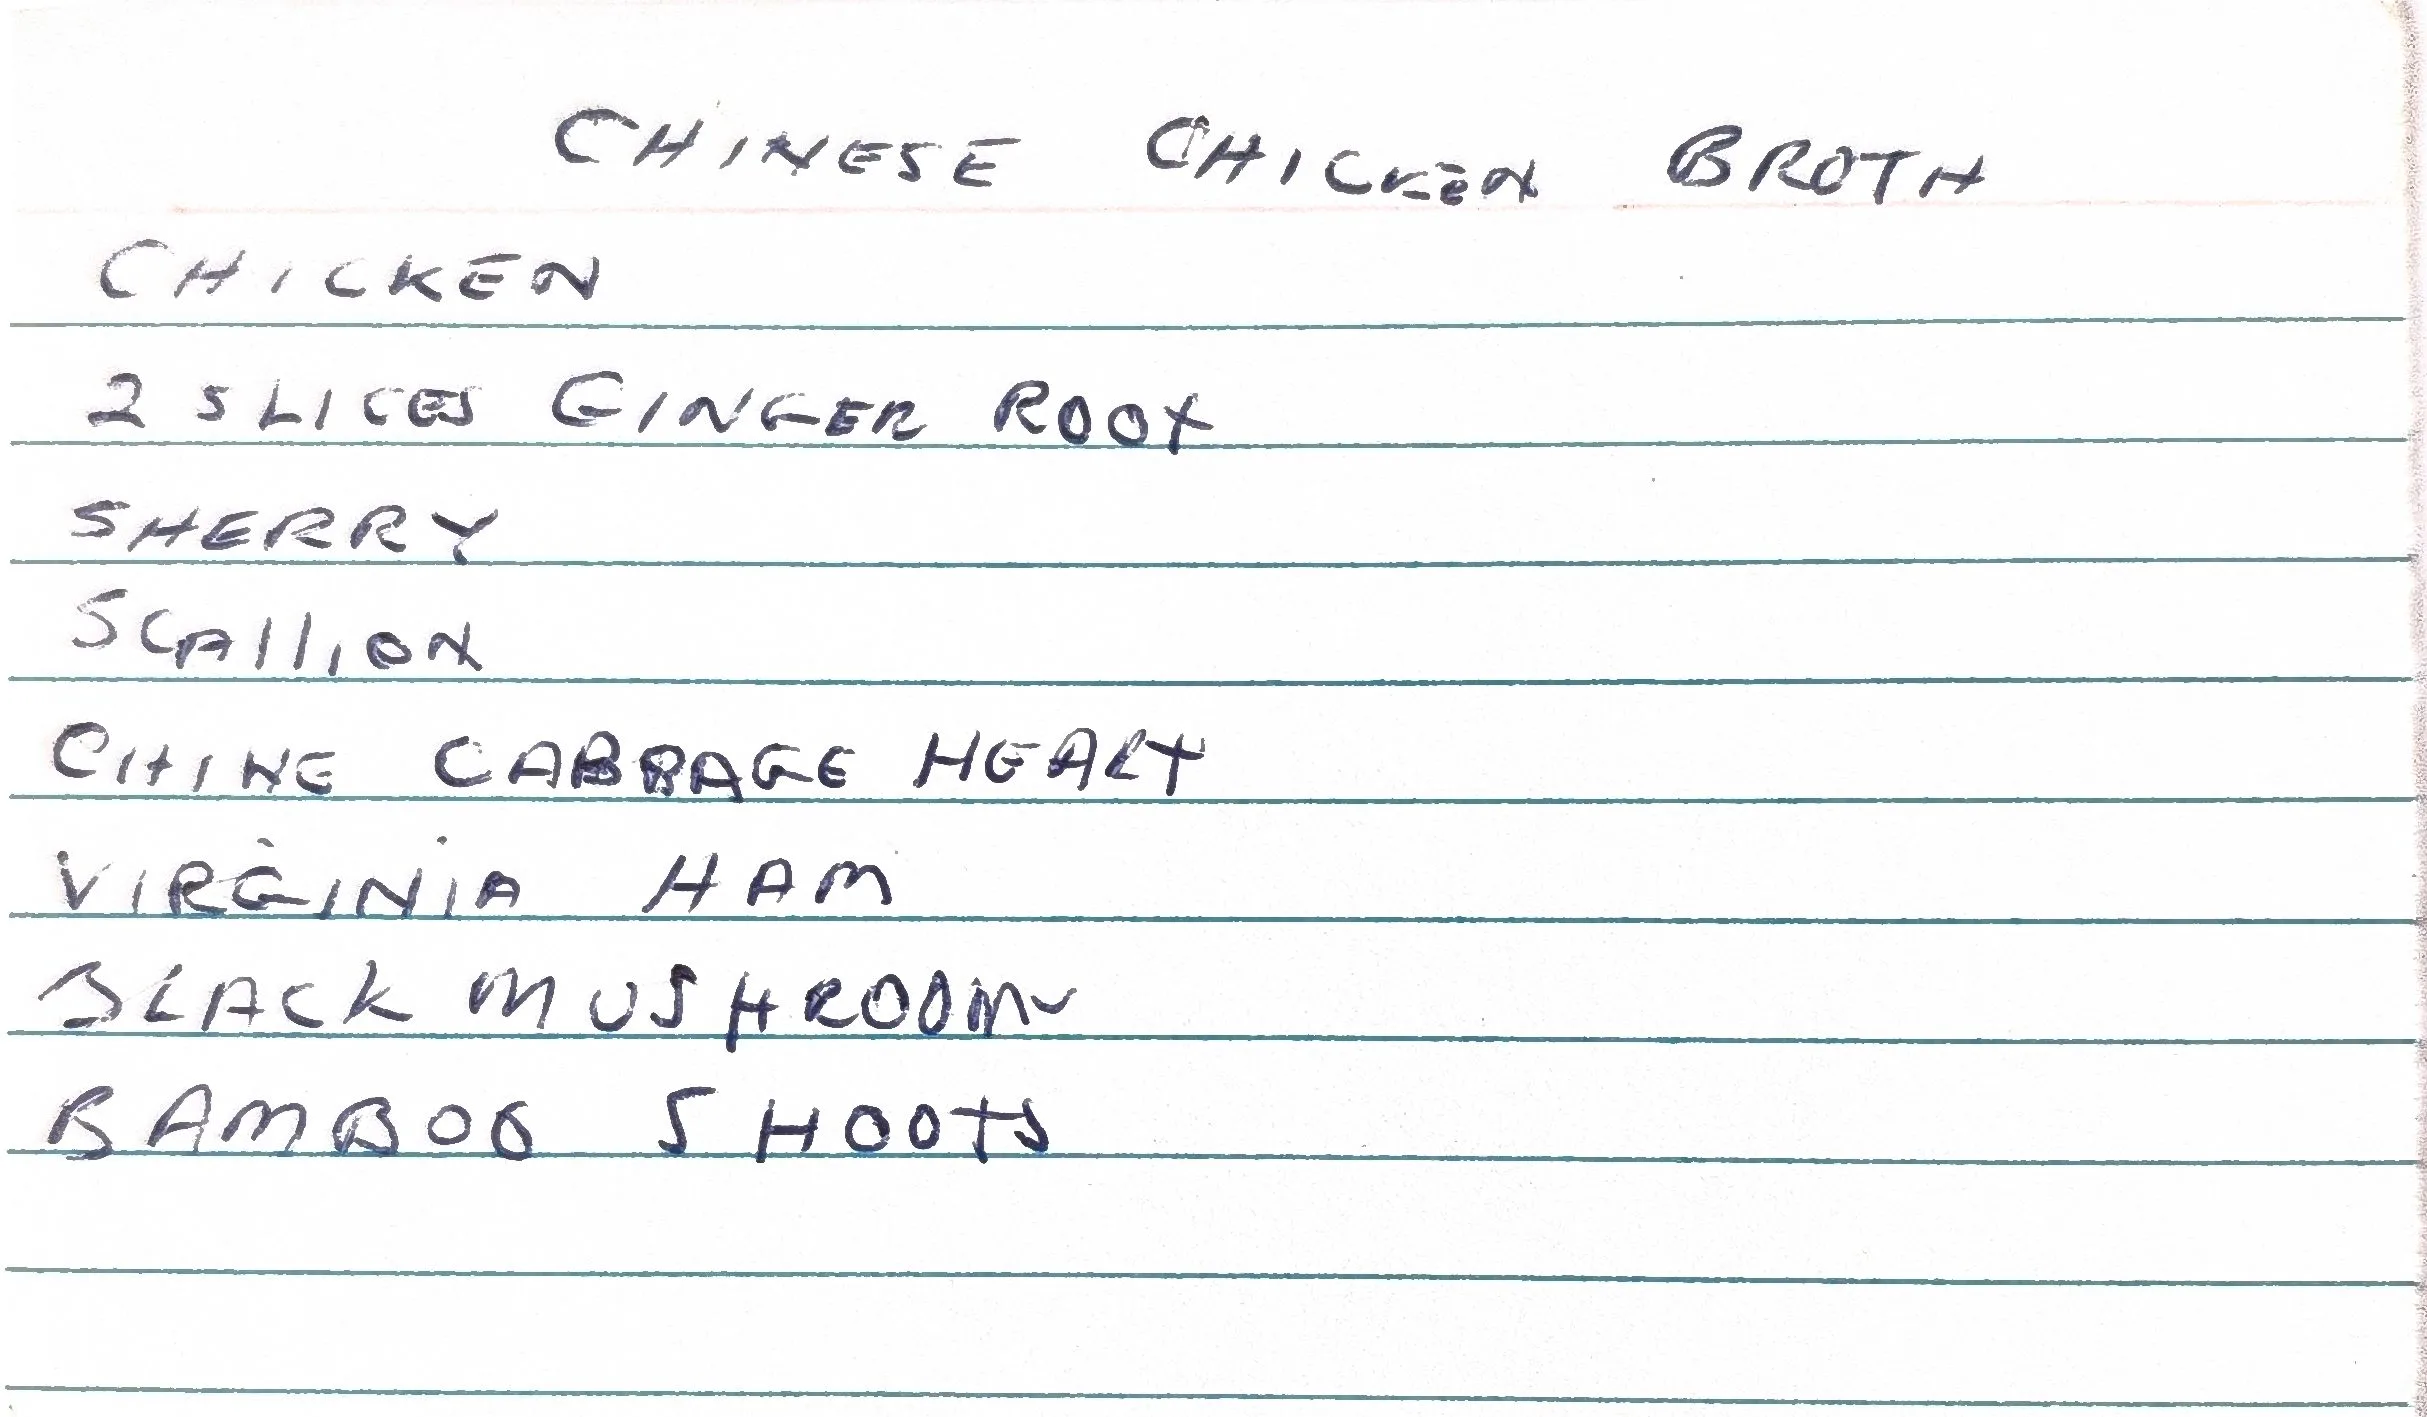 CHINESE CHICKEN BROTH
CHICKEN
2 SLICES GINGER ROOT
SHERRY
SCAllION
CHINE CABBAGE HEART
VIRGINIA HAM
BLACK MUSHROOM
BAMBOO SHOOTS